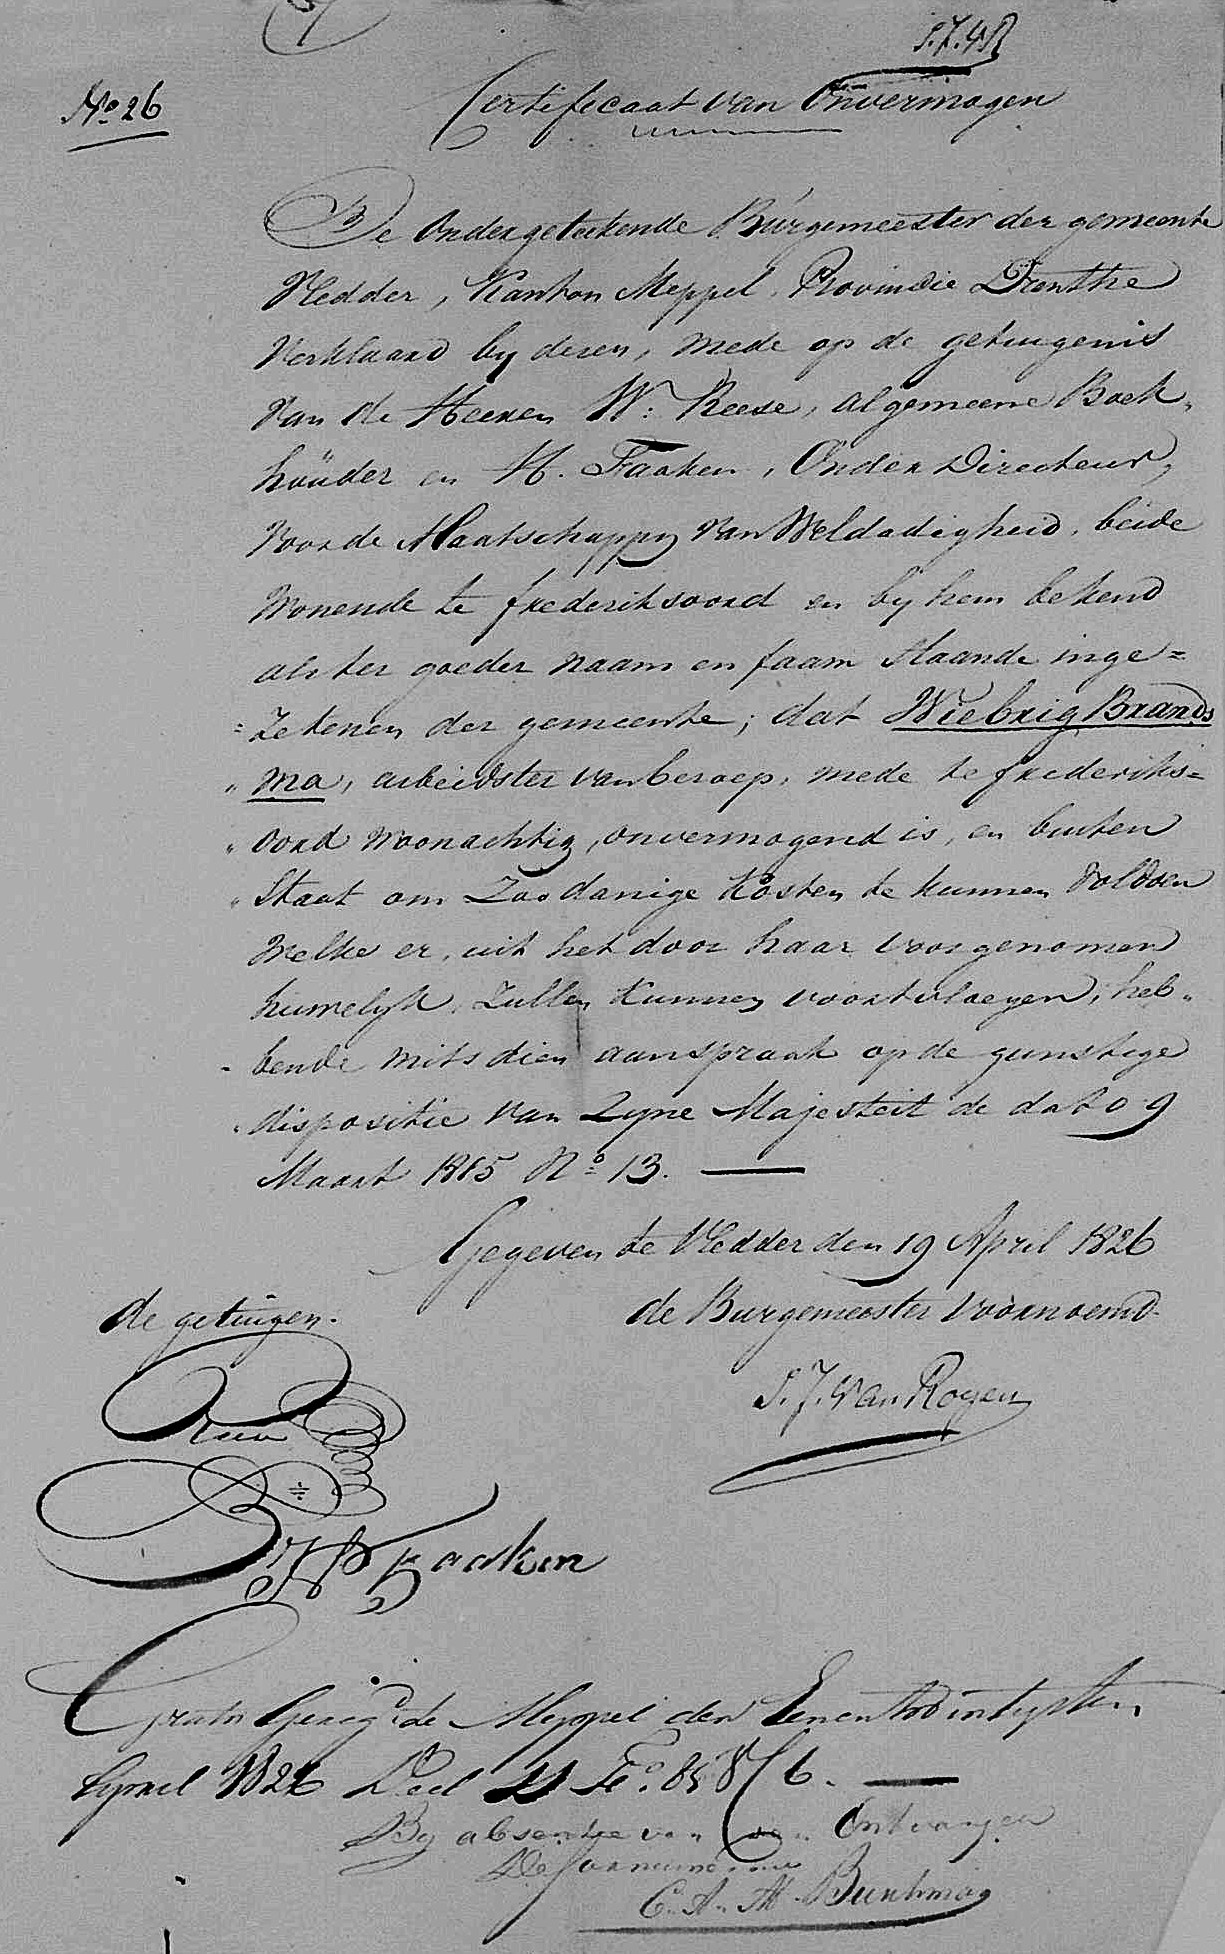 S.J.v.R
No 26
Certificaat van Onvermogen
De Ondergetekende Burgemeester der gemeente
Vledder, Kanton Meppel, Provindie Drenthe
Verklaard by dezen, mede op de getuigenis
van de Heeren W: Reese, algemeene Boek„
houder en H. Faaken, Onder Directeur,
voor de Maatschappy van Weldadigheid, beide
Wonende te frederiksoord en by hem bekend
als ter goeder naam en faam staande inge=
=zetenen der gemeente; dat Wiebrig Brands
„ma, arbeidster van beroep, mede te frederiks=
„oord Woonachtig, onvermogend is, en buiten
„Staat om Zoodanige Kosten te kunnen voldoen
Welke er, uit het door haar voorgenomen
huwelyk, Zullen Kunnen voortvloeyen, heb„
-bende mits dien aanspraak op de gunstige
„dispositie van Zyne Majesteit de dato 9
Maart 1815 No 13.
Gegeven te Vledder den 19 April 1826
de getuigen.
de Burgemeester Voornoemd
S.J. van Royen
Reese
H Faaken
Gratis Gereg.d te Meppel den Eenentwintigsten
April 1826 Deel 4 Fo. 85 V 6.
By absentie van den Ontvanger
De
C. A. M